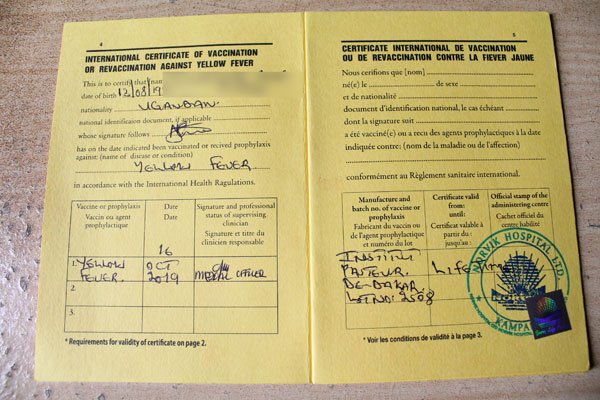 4
INTERNATIONAL CERTIFICATE OF VACCINATION
OR REVACCINATION AGAINST YELLOW FEVER
This is to certify that [name]
date of birth 12/08/19
nationality UGANDAN.
national identificaion document, if applicable
whose signature follows
has on the date indicated been vaccinated or recived prophylaxis
against: (name of disease or condition)
YELLOW FEVER
in accordance with the International Health Ragulations.
Vaccine or prophylaxis
Vaccin ou agent
prophylactique
Date
Date
Signature and professional
status of supervising
clinician
Signature et titre du
clinicien responsible
1. YELLOW FEVER.
16 OCT 2019
MEDICAL OFFICER
2.
3.
* Requirements for validity of certificate on page 2.
5
CERTIFICATE INTERNATIONAL DE VACCINATION
OU DE REVACCINATION CONTRE LA FIEVER JAUNE
Nous cerifions que [nom]
né(e) le de sexe
et de nationalité
document d'identification national, le cas échéant
dont la signature suit
a été vacciné(e) ou a recu des agents prophylactiques à la date
indiquée contre: (nom de la maladie ou de l'affection)
conformément au Règlement sanitaire international.
Manufacture and
batch no. of vaccine or
prophylaxis
Fabricant du vaccin ou
de l'agent prophylactique
et numéro du lot
Certificate valid
from:
until:
Certificat valable à
partir du :
jusqu'au :
Official stamp of the
administering centre
Cachet officiel du
centre liabilité
INSTITUT
PASTEUR
DE-DAKAR
LOT NO: 2508
Lifetime
NORVIK HOSPITAL LTD.
KAMPALA
* Voir les conditions de validité à la page 3.